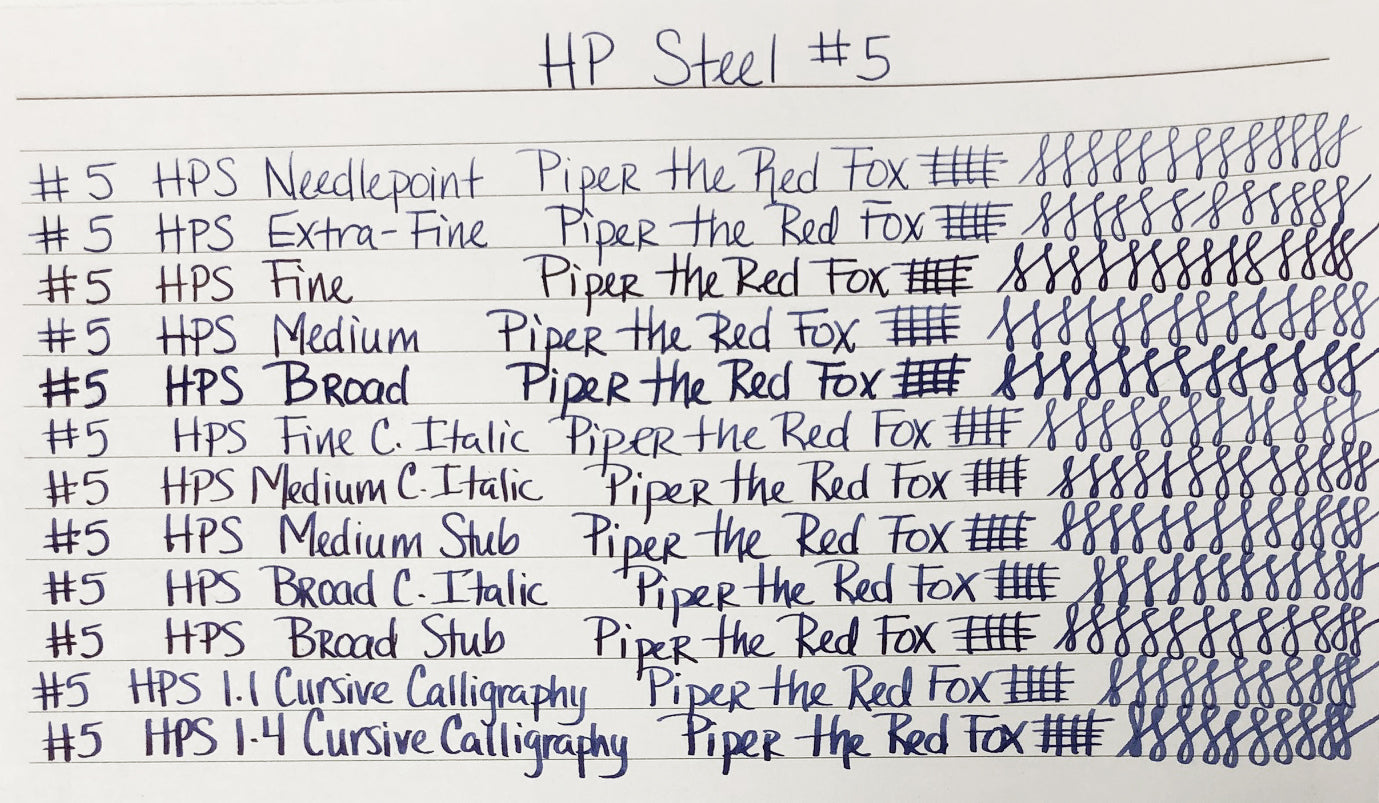 HP Steel #5
#5 HPS Needlepoint Piper the Red Fox
#5 HPS Extra-Fine Piper the Red Fox
#5 HPS Fine Piper the Red Fox
#5 HPS Medium Piper the Red Fox
#5 HPS Broad Piper the Red Fox
#5 HPS Fine C. Italic Piper the Red Fox
#5 HPS Medium C. Italic Piper the Red Fox
#5 HPS Medium Stub Piper the Red Fox
#5 HPS Broad C. Italic Piper the Red Fox
#5 HPS Broad Stub Piper the Red Fox
#5 HPS 1.1 Cursive Calligraphy Piper the Red Fox
#5 HPS 1.4 Cursive Calligraphy Piper the Red Fox